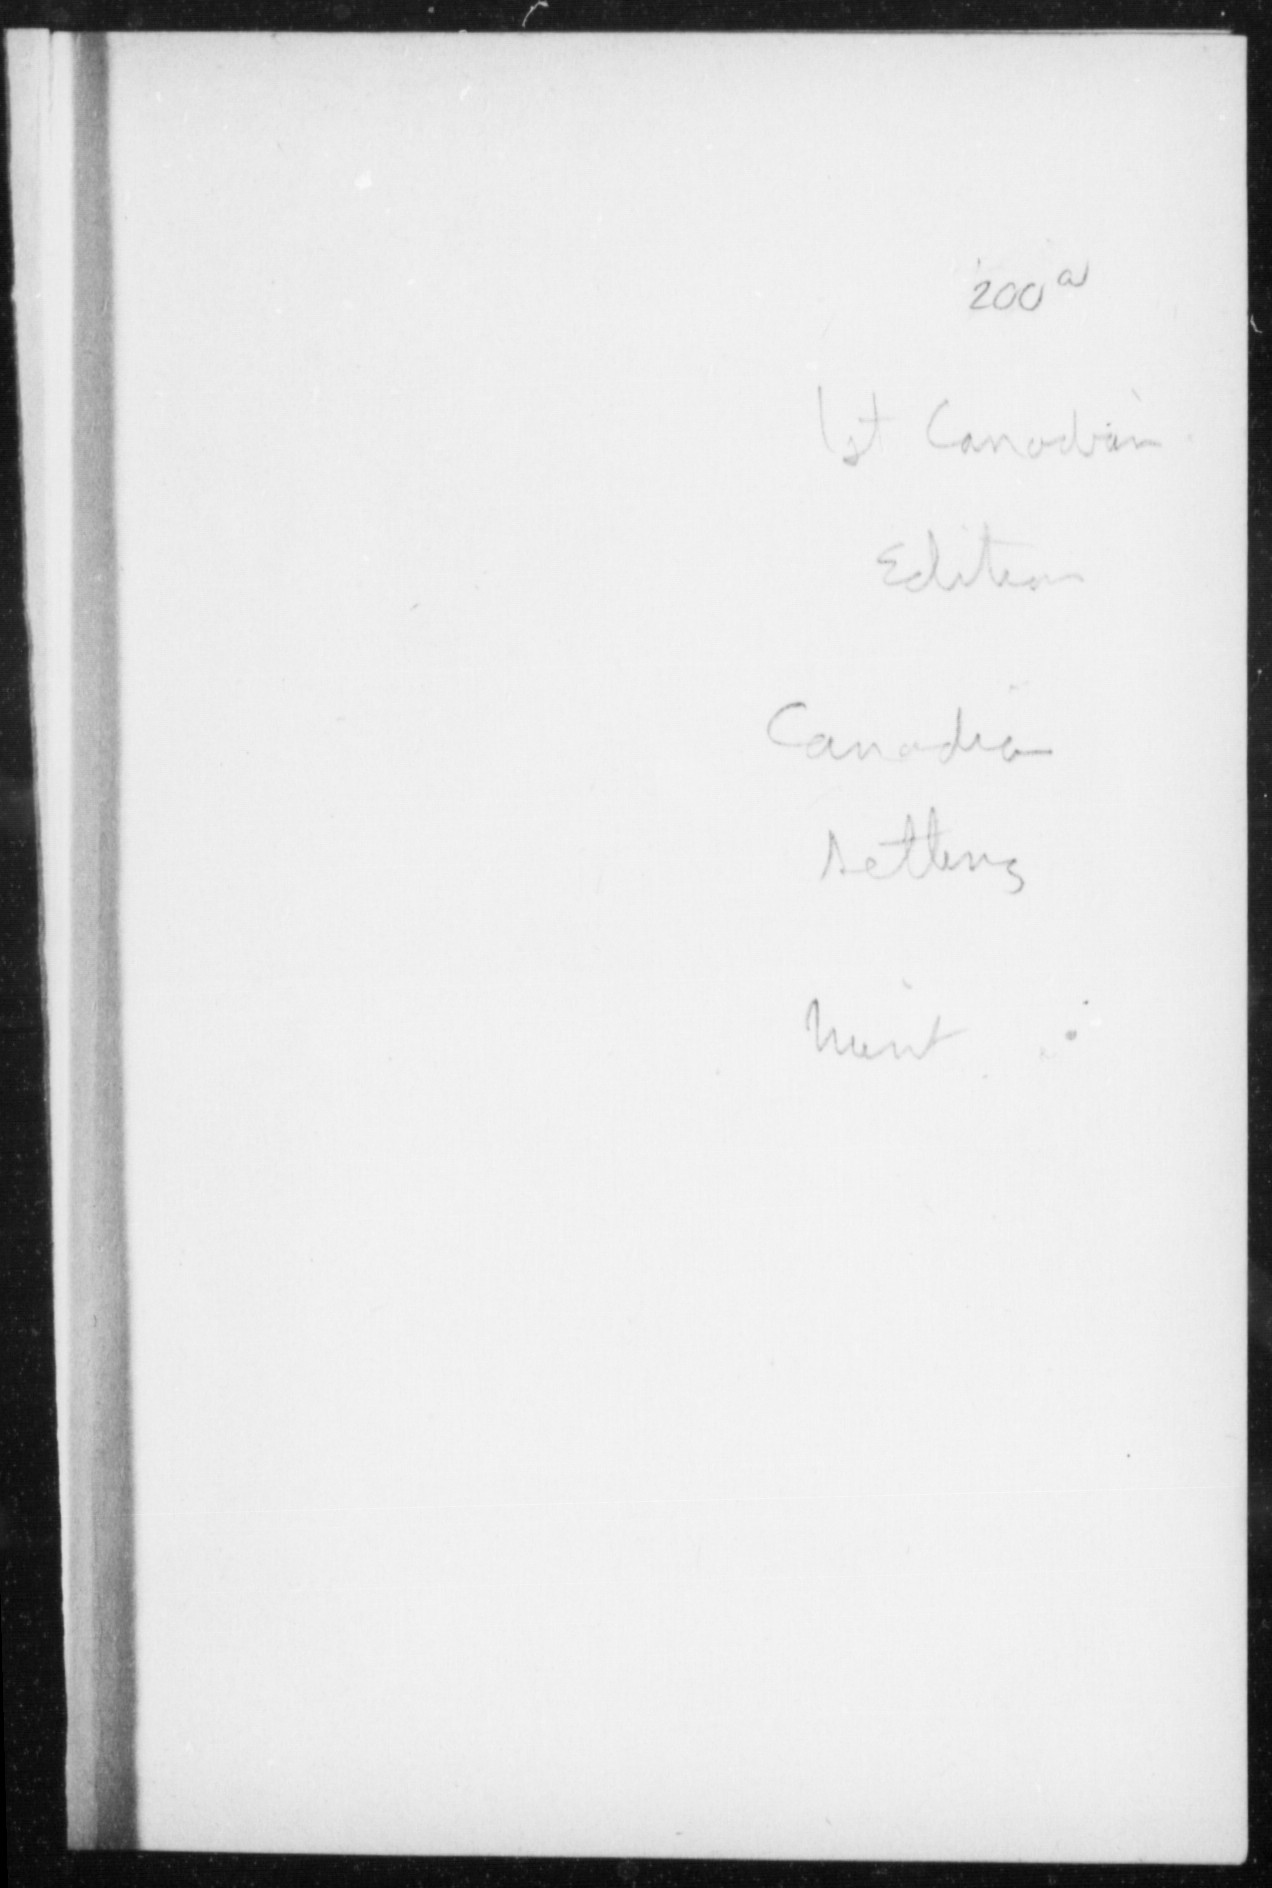 200 a
1st Canadian
Edition
Canadian
setting
Mint